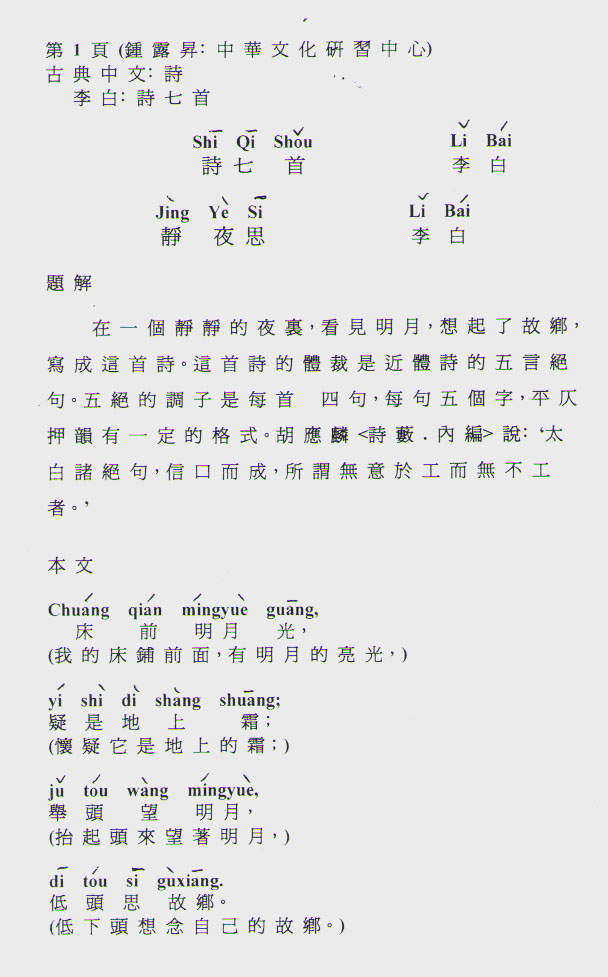 第 1 頁 (鍾 露 昇: 中 華 文 化 研 習 中 心)
古 典 中 文: 詩
李 白: 詩 七 首
Shī Qī Shǒu Lǐ Bái
詩 七 首 李 白
Jìng Yè Sī Lǐ Bái
靜 夜 思 李 白
題 解
在 一 個 靜 靜 的 夜 裏,看 見 明 月,想 起 了 故 鄉,
寫 成 這 首 詩。這 首 詩 的 體 裁 是 近 體 詩 的 五 言 絕
句。五 絕 的 調 子 是 每 首 四 句,每 句 五 個 字,平 仄
押 韻 有 一 定 的 格 式。胡 應 麟 <詩 藪 . 內 編> 說: ‘太
白 諸 絕 句,信 口 而 成,所 謂 無 意 於 工 而 無 不 工
者。’
本 文
Chuáng qián míngyuè guāng,
床 前 明 月 光,
(我 的 床 鋪 前 面,有 明 月 的 亮 光,)
yí shì dì shàng shuāng;
疑 是 地 上 霜;
(懷 疑 它 是 地 上 的 霜;)
jǔ tóu wàng míngyuè,
舉 頭 望 明 月,
(抬 起 頭 來 望 著 明 月,)
dī tóu sī gùxiāng.
低 頭 思 故 鄉。
(低 下 頭 想 念 自 己 的 故 鄉。)